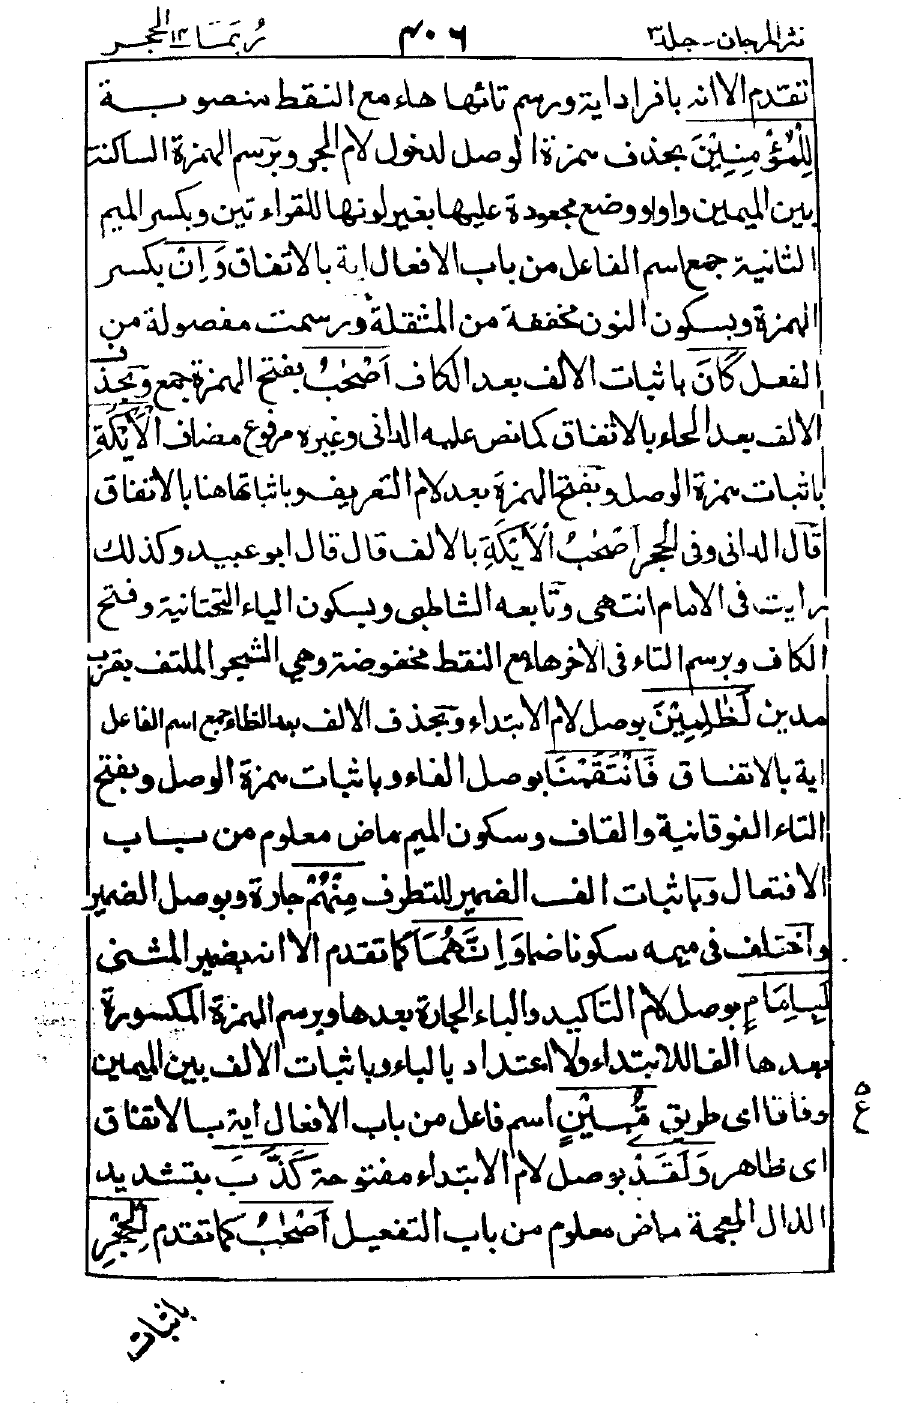 نثر المرجان - جلد ٣
٤٠٦
ربما ١٤ الحجر
تقدم الا انه بافراد اية ورسم تائها هاء مع النقط منصوبة
لِلْمُؤْمِنِيْنَ بحذف همزة الوصل لدخول لام الجر وبرسم الهمزة الساكنة
بين الميمين واوا ووضع مجعودة عليها بغير لونها للقراءتين وبكسر الميم
الثانية جمع اسم الفاعل من باب الافعال اية بالاتفاق وَاِنْ بكسر
الهمزة وبسكون النون مخففة من المثقلة ورسمت مفصولة من
الفعل كَانَ باثبات الالف بعد الكاف اَصْحٰبُ بفتح الهمزة جمع وبحذف
الالف بعد الحاء بالاتفاق كما نص عليه الدانى وغيره مرفوع مضاف الْاَيْكَةِ
باثبات همزة الوصل وبفتح الهمزة بعد لام التعريف وباثباتها هنا بالاتفاق
قال الدانى وفى الحجر اَصْحٰبُ الْاَيْكَةِ بالالف قال قال ابو عبيد وكذلك
رايت فى الامام انتهى وتابعه الشاطبى وبسكون الياء التحتانية وفتح
الكاف وبرسم التاء فى الاخر هاء مع النقط مخفوضة وهي الشجر الملتف بقرب
مدين لَظٰلِمِيْنَ بوصل لام الابتداء وبحذف الالف بعد الظاء جمع اسم الفاعل
اية بالاتفاق فَانْتَقَمْنَا بوصل الفاء وباثبات همزة الوصل وبفتح
التاء الفوقانية والقاف وسكون الميم ماض معلوم من باب
الافتعال وباثبات الف الضمير للتطرف مِنْهُمْ جارة وبوصل الضمير
واختلف فى ميمه سكونا ضما وَاِنَّهُمَا كما تقدم الا انه بضمير المثنى
لَبِاِمَامٍ بوصل لام التاكيد والباء الجارة بعدها وبرسم الهمزة المكسورة
بعدها الفا للابتداء ولا اعتداد بالباء وباثبات الالف بين الميمين
وفاقا اى طريق مُّبِيْنٍ اسم فاعل من باب الافعال اية بالاتفاق
اى ظاهر وَلَقَدْ بوصل لام الابتداء مفتوحة كَذَّبَ بتشديد
الذال المعجمة ماض معلوم من باب التفعيل اَصْحٰبُ كما تقدم الْحِجْرِ
ع
باثبات